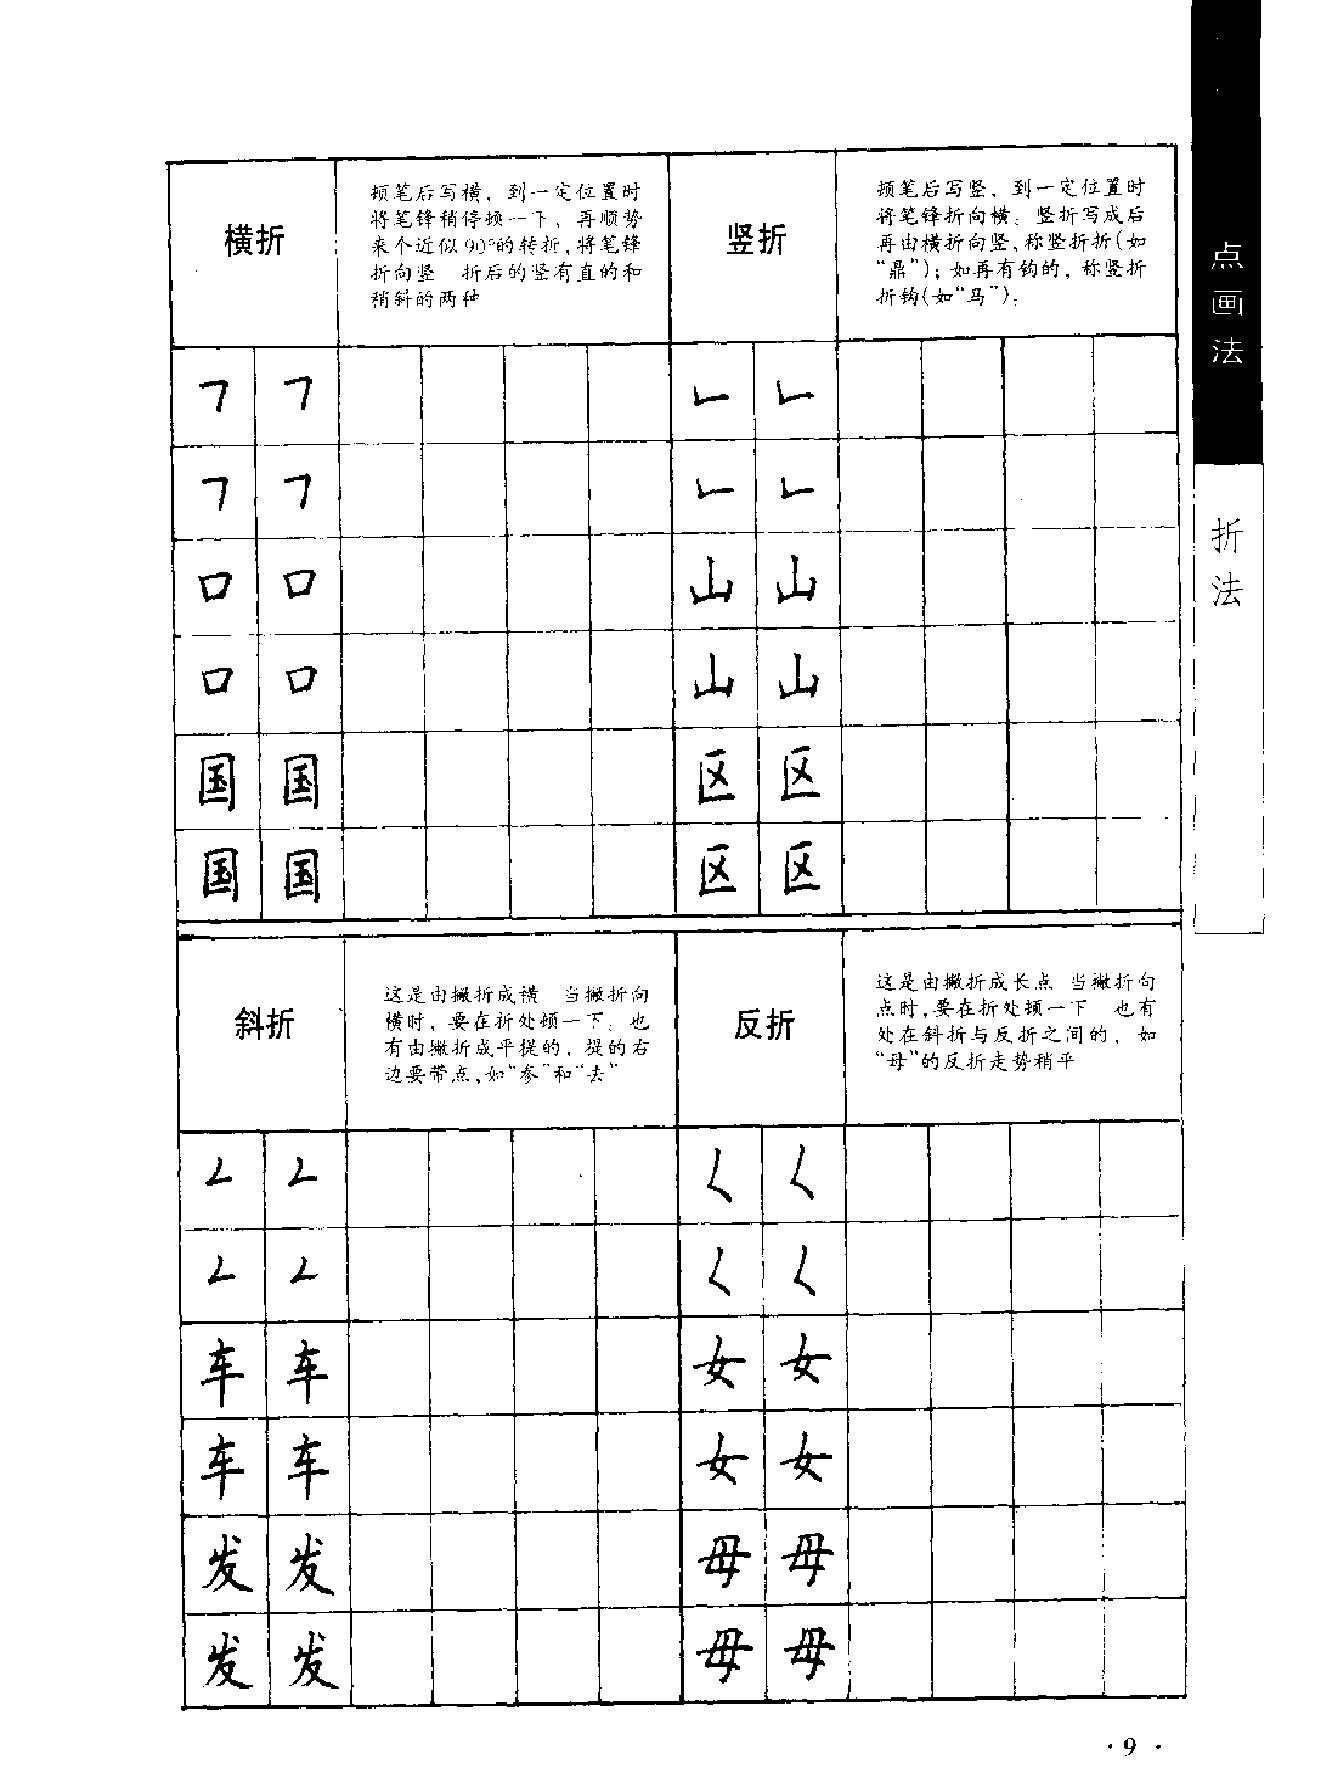 点画法
折法
横折
顿笔后写横，到一定位置时
将笔锋稍停顿一下，再顺势
来个近似90°的转折，将笔锋
折向竖 折后的竖有直的和
稍斜的两种
竖折
顿笔后写竖，到一定位置时
将笔锋折向横；竖折写成后
再由横折向竖、称竖折折（如
“鼎”）；如再有钩的，称竖折
折钩（如“马”）；
㇕ ㇕
㇕ ㇕
口 口
口 口
国 国
国 国
㇗ ㇗
㇗ ㇗
山 山
山 山
区 区
区 区
斜折
这是由撇折成横 当撇折向
横时，要在折处顿一下，也
有由撇折成平提的，提的右
边要带点，如“参”和“去”
反折
这是由撇折成长点 当撇折向
点时，要在折处顿一下 也有
处在斜折与反折之间的，如
“母”的反折走势稍平
㇜ ㇜
㇜ ㇜
车 车
车 车
发 发
发 发
㇛ ㇛
㇛ ㇛
女 女
女 女
母 母
母 母
·9·